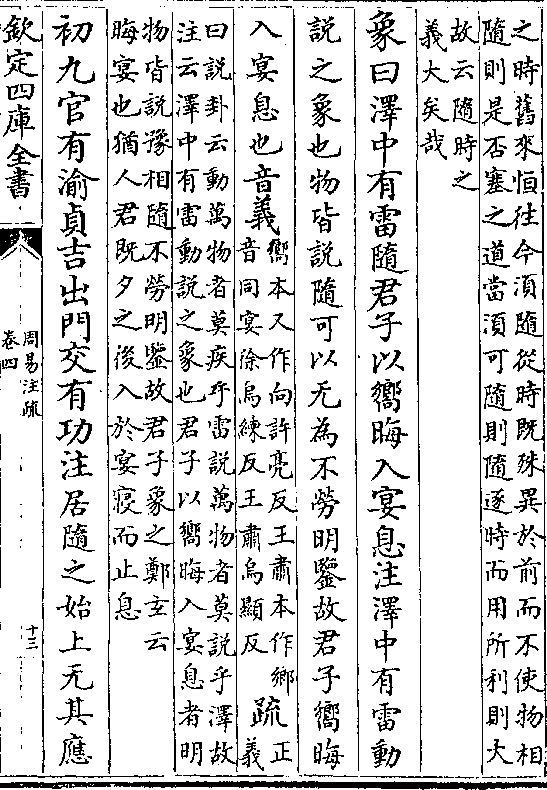 之時舊來恒往今湏隨從時既殊異於前而不使物相
隨則是否塞之道當湏可隨則隨逐時而用所利則大
故云隨時之
義大矣哉
象曰澤中有雷隨君子以嚮晦入宴息注澤中有雷動
說之象也物皆說隨可以无為不勞明鑒故君子嚮晦
入宴息也音義嚮本又作向許亮反王肅本作鄉
音同宴徐烏練反王肅烏顯反疏正
義
曰說卦云動萬物者莫疾乎雷說萬物者莫說乎澤故
注云澤中有雷動說之象也君子以嚮晦入宴息者明
物皆說豫相隨不勞明鑒故君子象之鄭𤣥云
晦宴也猶人君既夕之後入於宴寢而止息
初九官有渝貞吉出門交有功注居隨之始上无其應
欽定四庫全書
周易注疏
卷四
十三